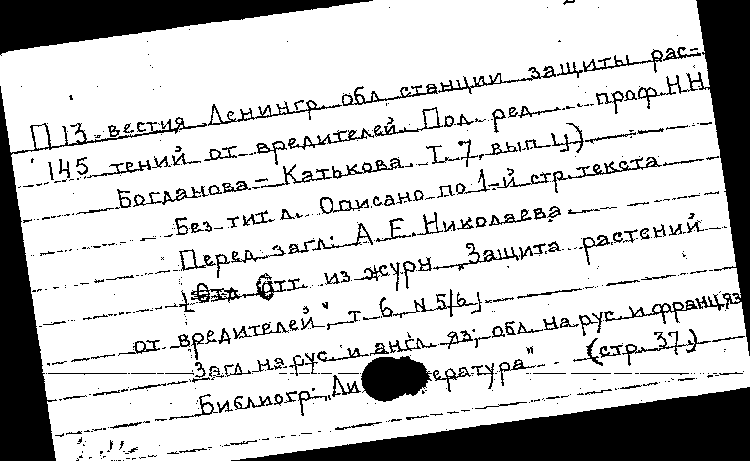 П 13-вестия Ленингр. обл станции защиты рас-
145 тений от вредителей. Под. ред.... проф. Н.Н
Богданова-Катькова. Т. 7, вып 4)
Без тит л. Описано по 1-й стр. текста
Перед загл: А. Е. Николаева.
Отт. из журн „Защита растений
от вредителей", т. 6, N 5/6
Загл. на рус. и англ. яз; обл. на рус. и француз
Библиогр: „Ли ература" (стр. 37.)